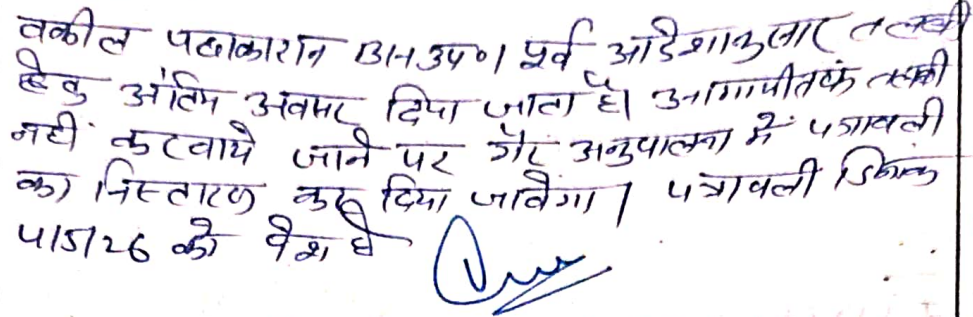 वकील पक्षकारान उप०। पूर्व आदेशानुसार तलबी
हेतु अंतिम अवसर दिया जाता है। आगामी तक तलबी
नहीं करवाये जाने पर गैर अनुपालना में पत्रावली
का निस्तारण कर दिया जावेगा। पत्रावली दिनांक
4/5/26 को पेश हो